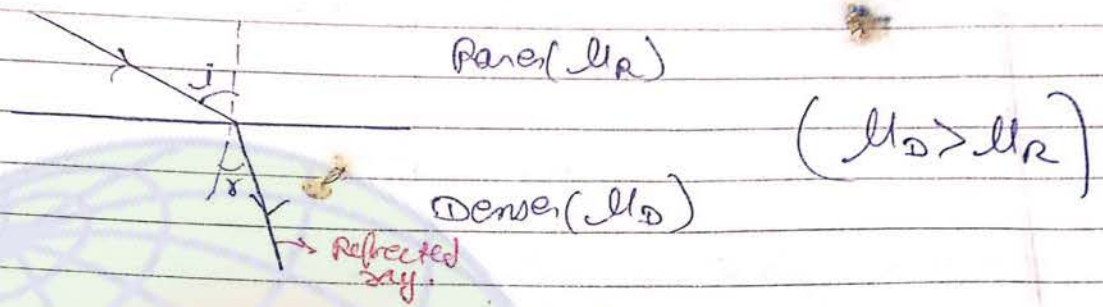 Rarer(μR)
i
(μD>μR)
r
Denser(μD)
Refrected
ray.